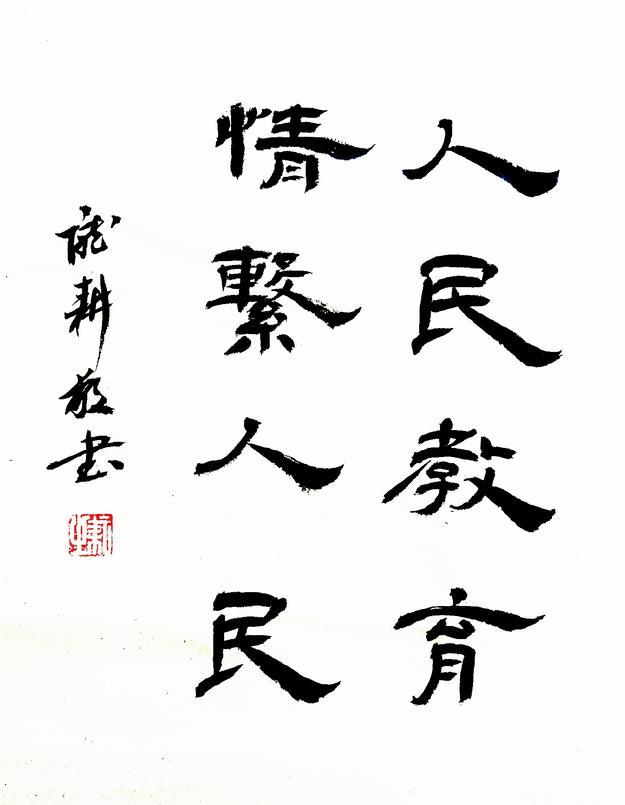 人民教育
情繫人民
耕敬书